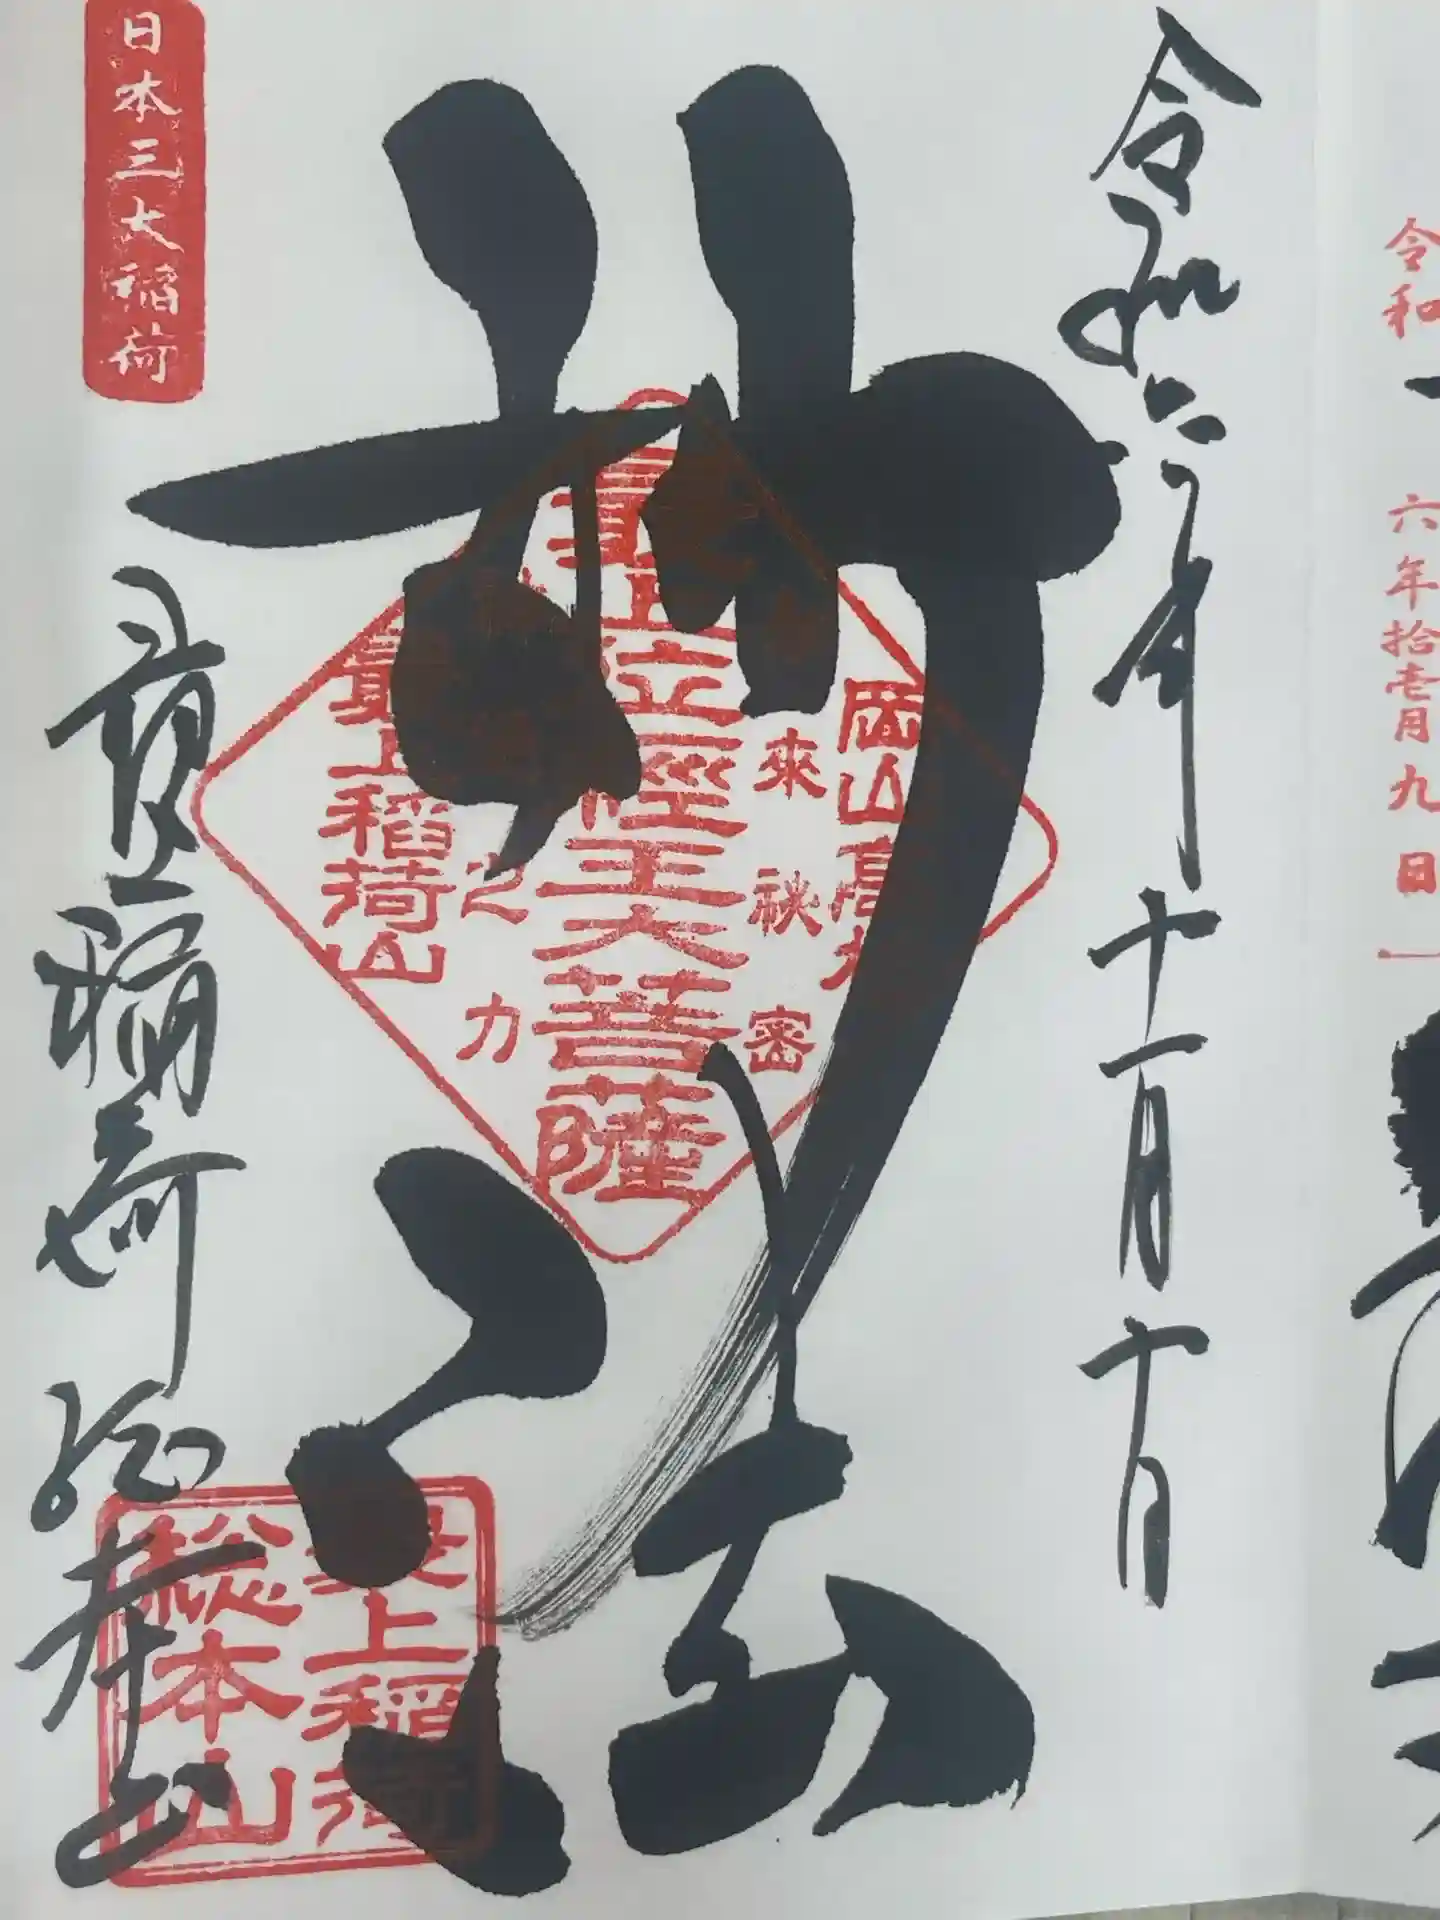 令和六年十一月十日
妙法
岡山高松
最上位経王大菩薩
如来秘密
神通之力
最上稲荷山
日本三大稲荷
最上稲荷総本山
最上稲荷
総本山
令和
六年拾壱月九日